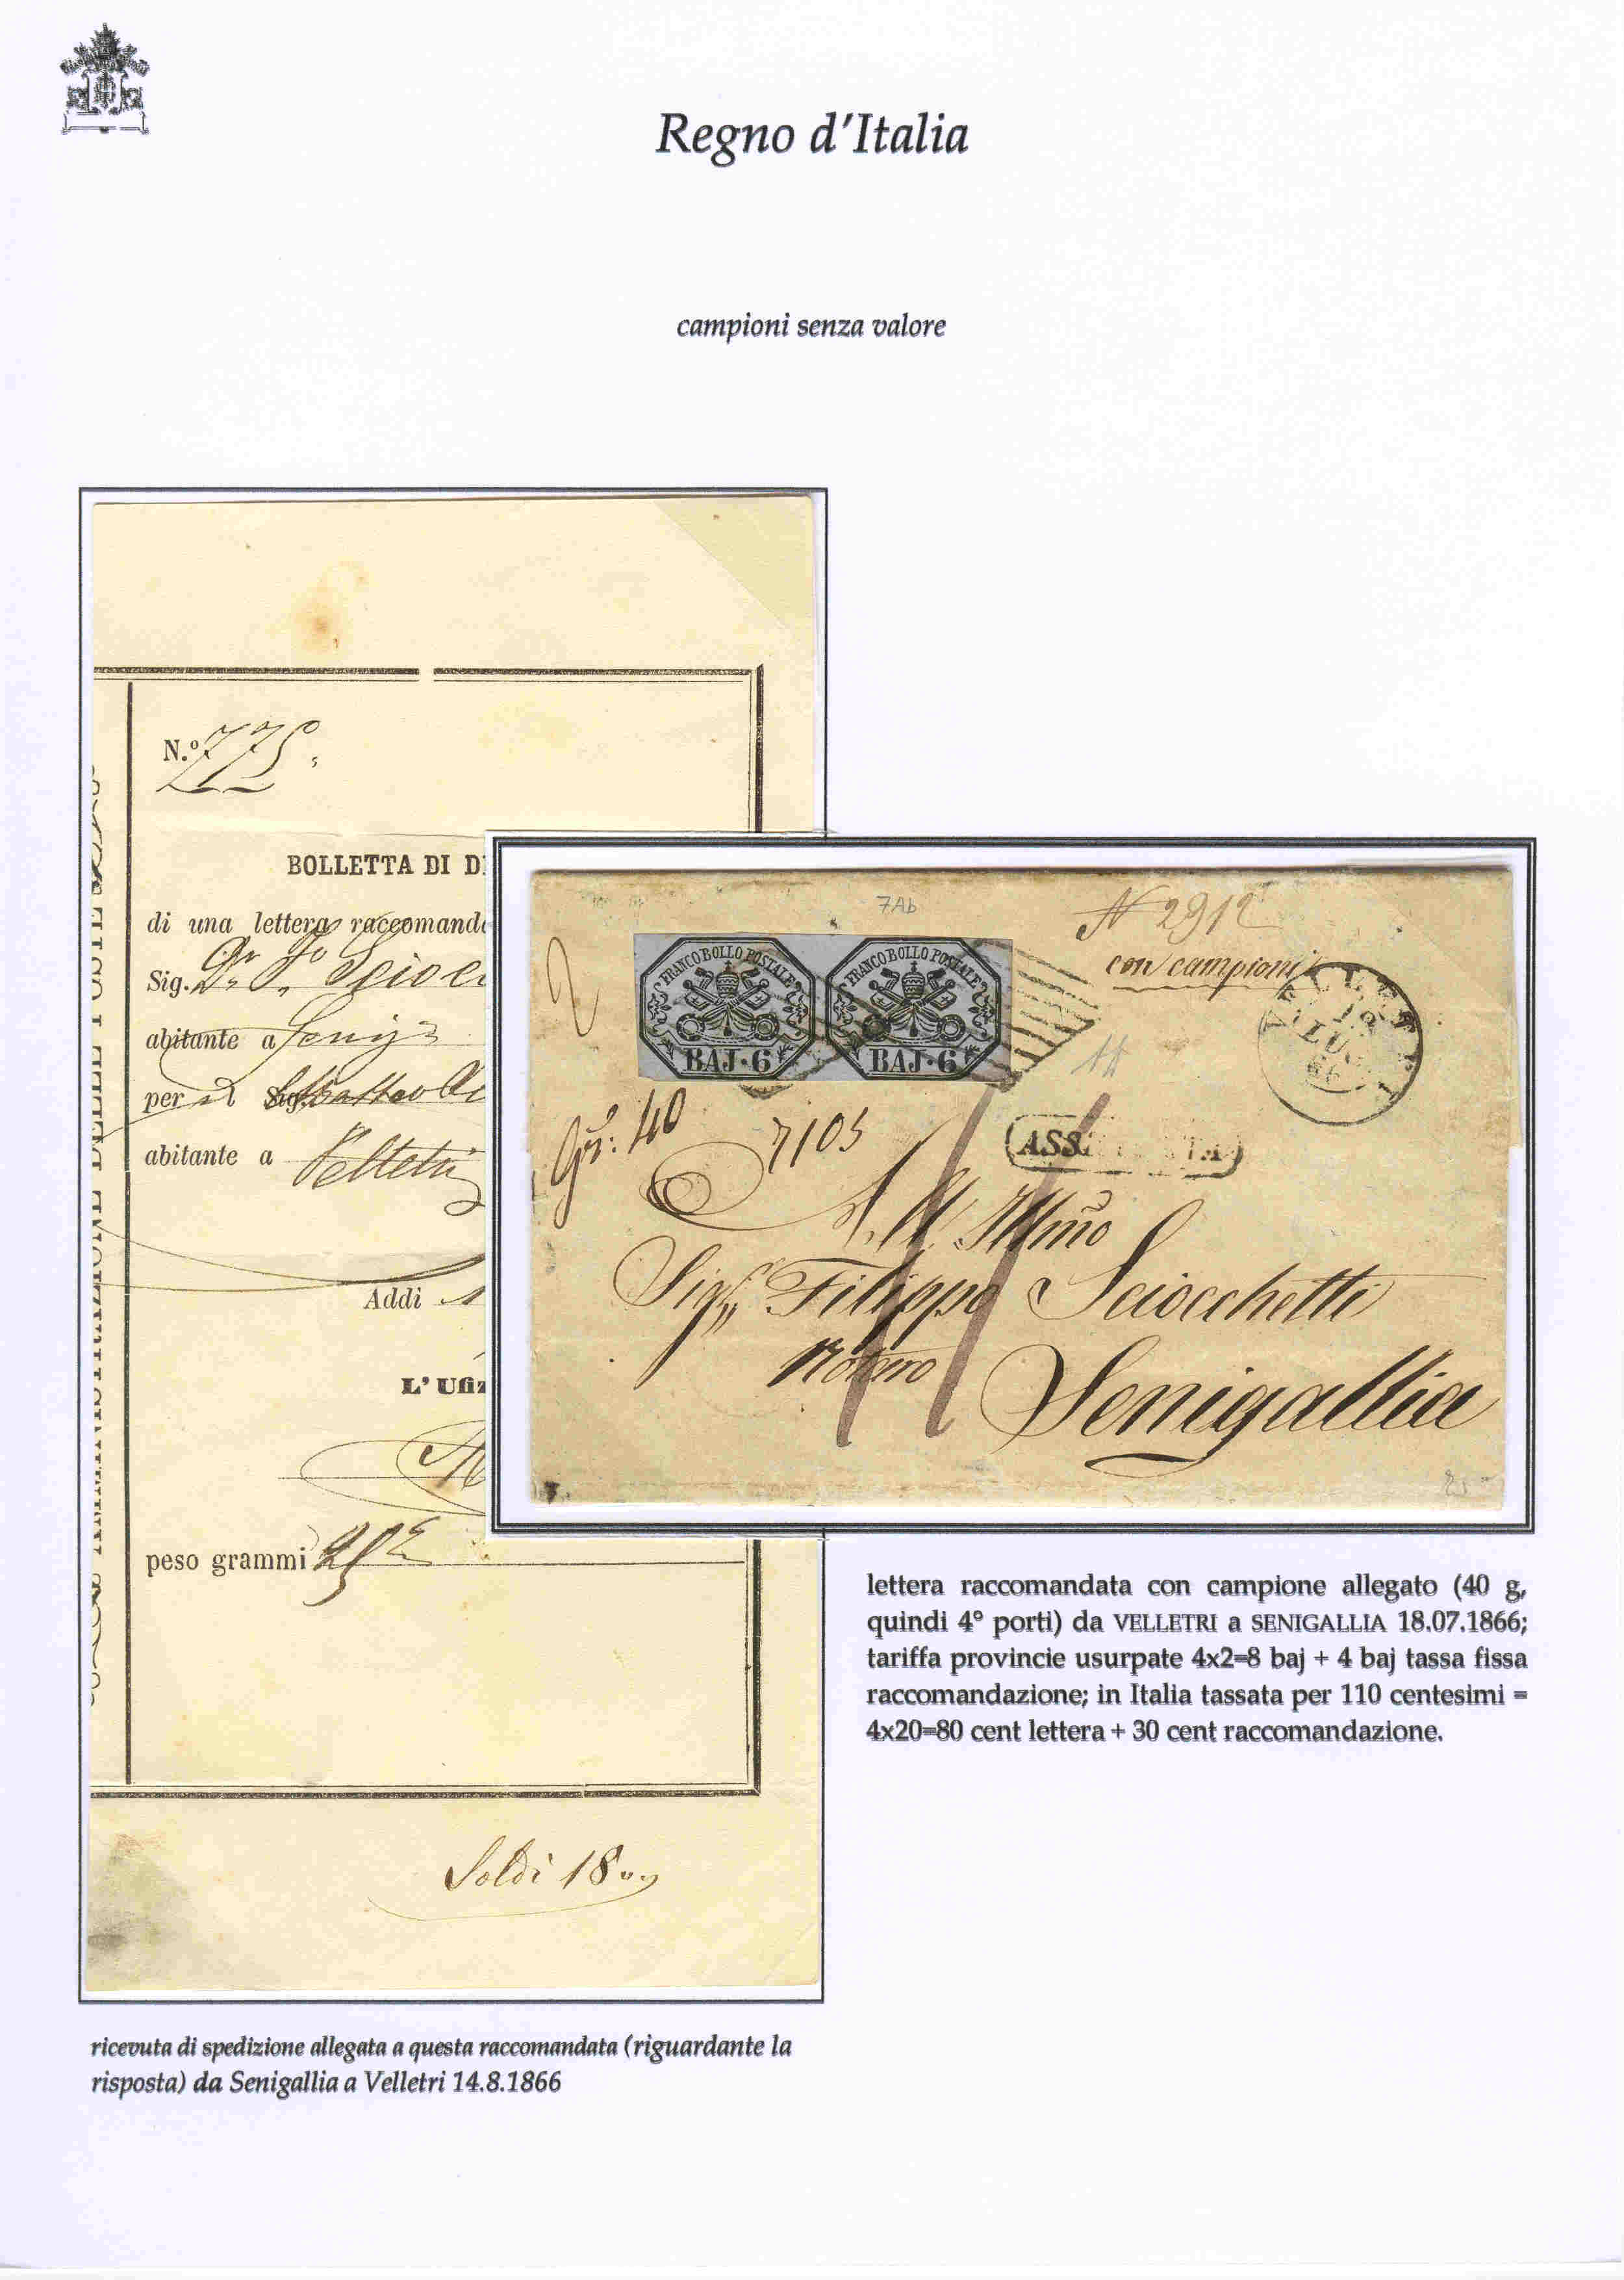 Regno d'Italia
campioni senza valore
N.º 775
BOLLETTA DI D
di una lettera raccomand
Sig.
abitante a Senig
per il Sig. Matteo
abitante a Velletri
Addì
L' Ufiz
peso grammi
Soldi 18
7Ab
N 2912
con campioni
FRANCO BOLLO POSTALE
BAJ·6
FRANCO BOLLO POSTALE
BAJ·6
VELLETRI
18
LUG
66
Gr: 40
7105
ASS
11
Illmo
Sigr Filippo Sciocchetti
Notaro
Senigallia
lettera raccomandata con campione allegato (40 g,
quindi 4° porti) da VELLETRI a SENIGALLIA 18.07.1866;
tariffa provincie usurpate 4x2=8 baj + 4 baj tassa fissa
raccomandazione; in Italia tassata per 110 centesimi =
4x20=80 cent lettera + 30 cent raccomandazione.
ricevuta di spedizione allegata a questa raccomandata (riguardante la
risposta) da Senigallia a Velletri 14.8.1866